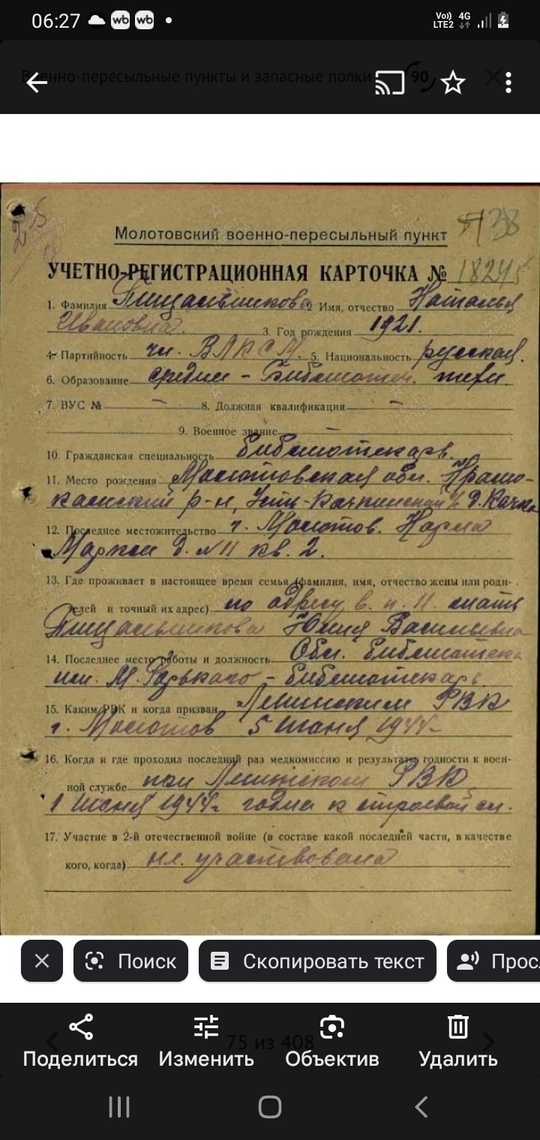 06:27
Vo)) 4G
LTE2
Военно-пересыльные пункты и запасные полки
90
Молотовский военно-пересыльный пункт
УЧЕТНО-РЕГИСТРАЦИОННАЯ КАРТОЧКА №
1. Фамилия Птицальщикова Имя, отчество Наталья
Ивановна. 3. Год рождения 1921.
4. Партийность чл. ВЛКСМ. 5. Национальность русская.
6. Образование средне - Библиотеч. техн.
7. ВУС № — 8. Должная квалификация —
9. Военное звание
10. Гражданская специальность библиотекарь.
11. Место рождения Молотовская обл. Красно-
камский р-н, Усть-Качкинский д. Качка
12. Последнее местожительство г. Молотов. Карла
Маркса д. № 11 кв. 2.
13. Где проживает в настоящее время семья (фамилия, имя, отчество жены или роди-
телей и точный их адрес) по адресу в. п. 11. мать
Юлия Васильевна
14. Последнее место работы и должность Обл. библиотека
им. М. Горького - библиотекарь
15. Каким РВК и когда призван Ленинским РВК
г. Молотов 5 июня 1944г
16. Когда и где проходил последний раз медкомиссию и результаты годности к воен-
ной службе при Ленинском РВК
1 июня 1944г. годна к строевой сл.
17. Участие в 2-й отечественной войне (в составе какой последней части, в качестве
кого, когда) не участвовала
Поиск
Скопировать текст
Просл
75 из 408
Поделиться
Изменить
Объектив
Удалить